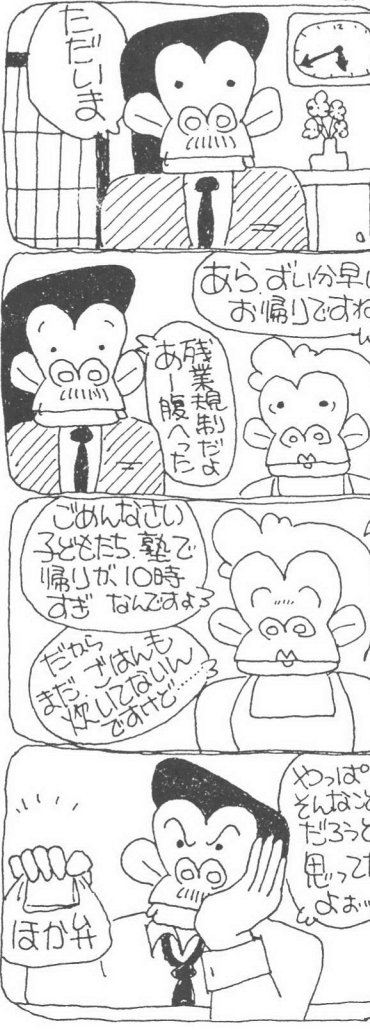 12
ただいま
あら、ずい分早い
お帰りですね
残業規制だよ
あー腹へった
ごめんなさい
子どもたち、塾で
帰りが、10時
すぎ なんですよ
だから
まだ、ごはんも
炊いてないん
ですけど……
やっぱ
そんなこと
だろうと
思ってた
よぉ…
ほか弁